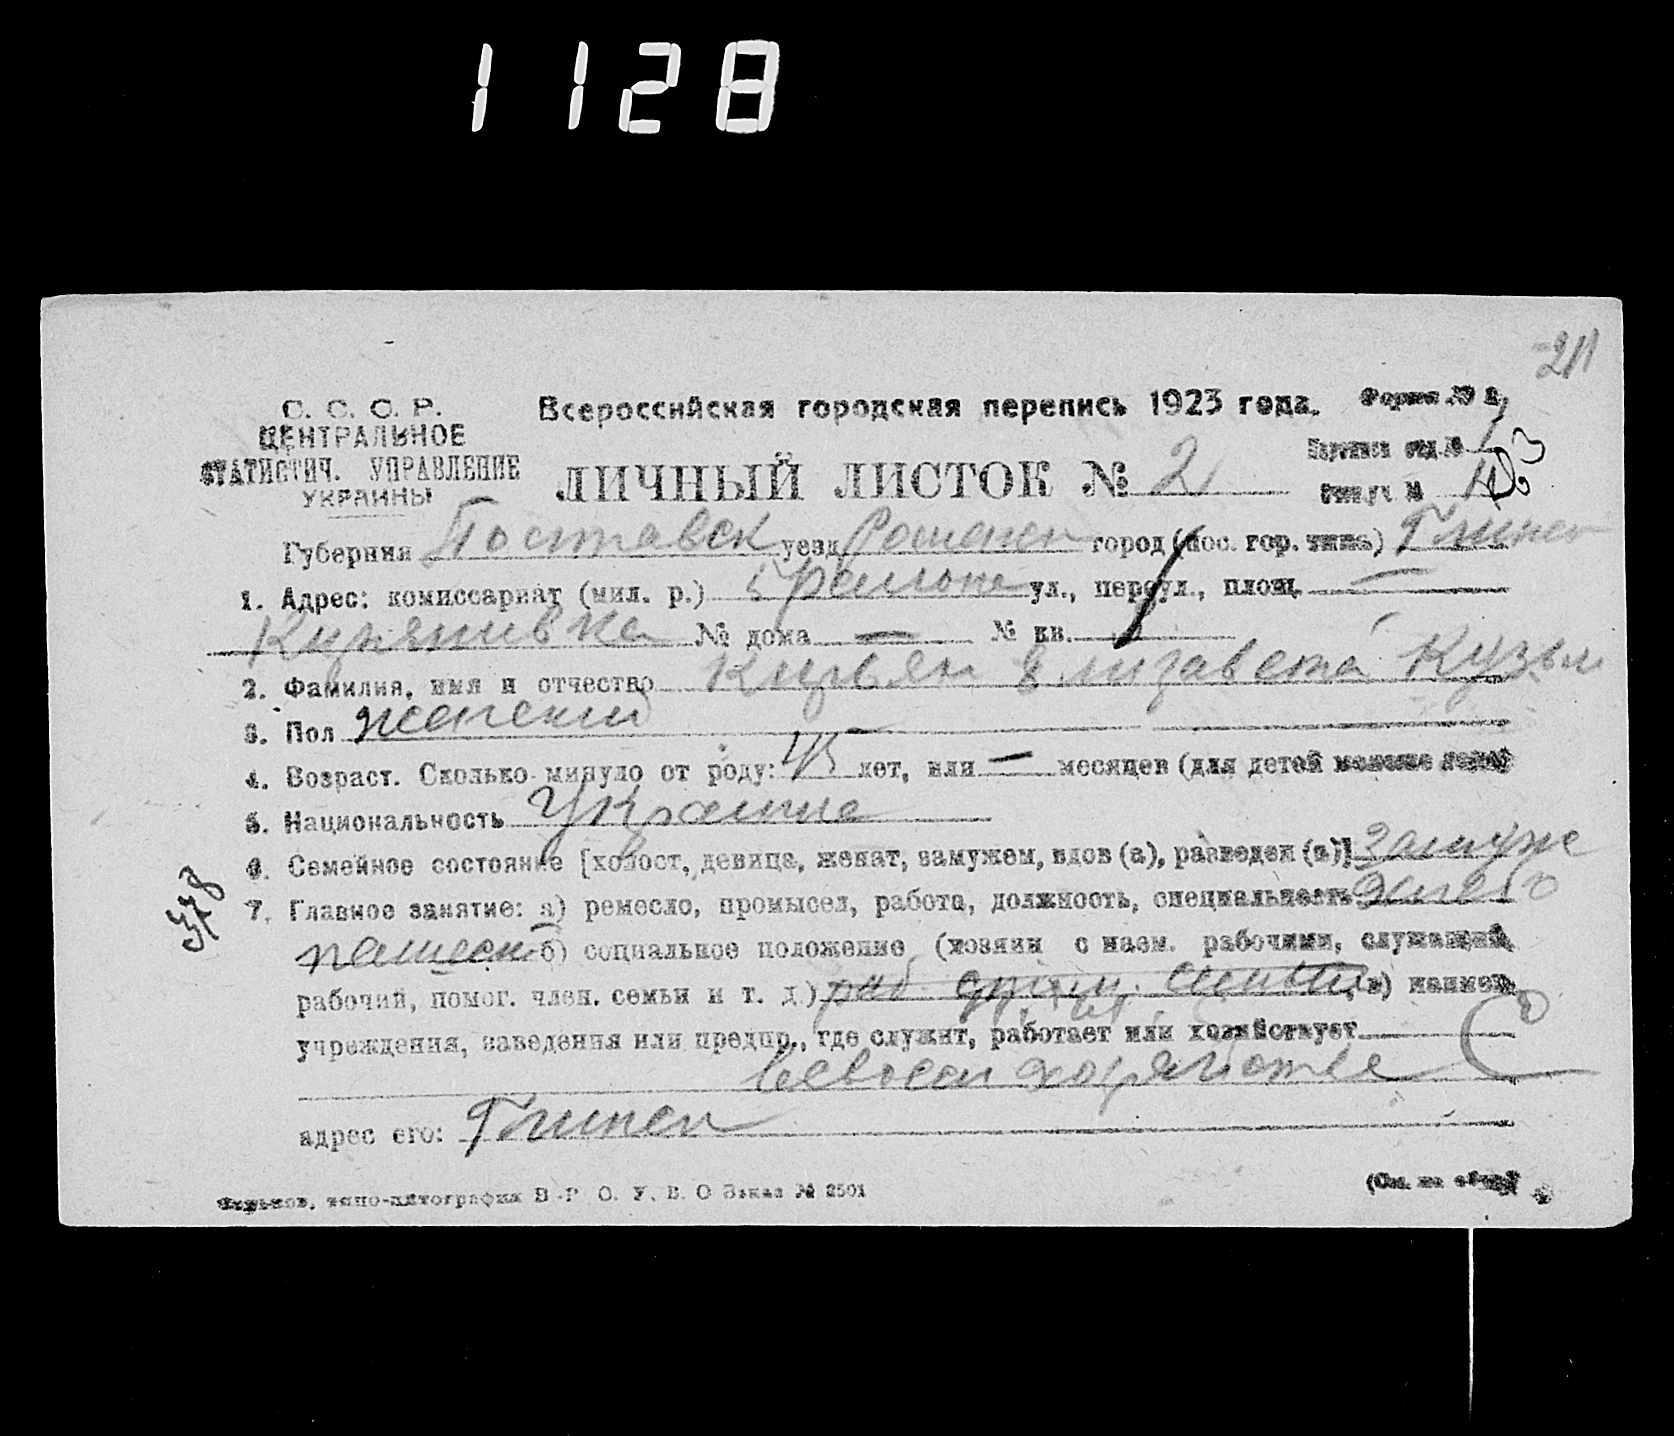 1128
211
С. С. С. Р.
ЦЕНТРАЛЬНОЕ
СТАТИСТИЧ. УПРАВЛЕНИЕ
УКРАИНЫ
Всероссийская городская перепись 1923 года.
Форма № 2
ЛИЧНЫЙ ЛИСТОК № 2
Губерния Полтавск уезд город (пос. гор. типа) Глинск
1. Адрес: комиссариат (мил. р.) района ул., переул., площ. —
№ дома — № кв.
2. Фамилия, имя и отчество Елизавета Кузьм
3. Пол женский
4. Возраст. Сколько минуло от роду: 45 лет, или — месяцев (для детей
5. Национальность Украинка
6. Семейное состояние [холост, девица, женат, замужем, вдов (а), разведен (а)] Замуж
7. Главное занятие: а) ремесло, промысел, работа, должность, специальность хлебо
пашест б) социальное положение (хозяин с наем. рабочими, служащий,
рабочий, помог. член. семьи и т. д.) в) наимен.
учреждения, заведения или предпр., где служит, работает или хозяйствует
в своем хозяйстве
адрес его: Глинск
Харьков, типо-литография В. Р. О. У. В. О Заказ № 2501
(См. на обор.)
378